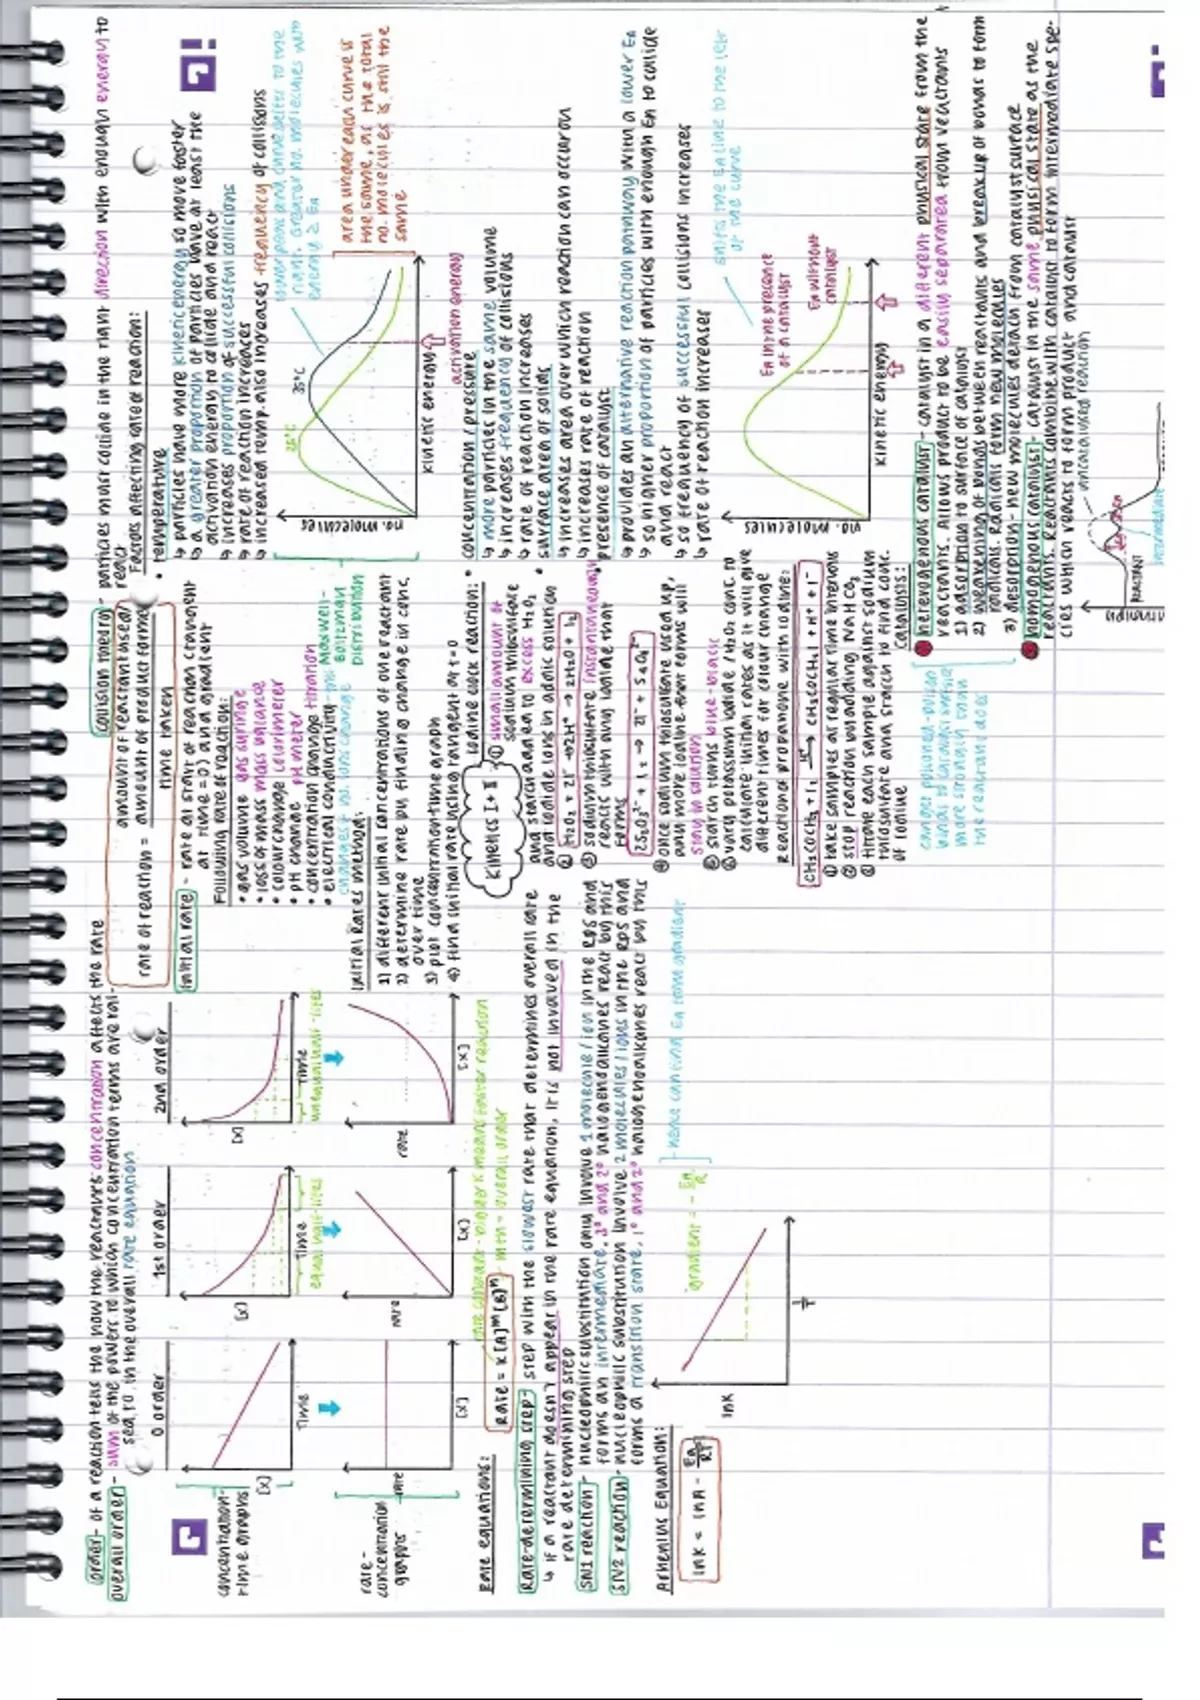 order - of a reaction tells the how the reactants concentration affects the rate
overall order - sum of the powers to which concentration terms are rai-
sed to, in the overall rate equation
0 order
1st order
2nd order
concentration-
time graphs
[x]
Time
[x]
Time
equal half-lifes
[x]
Time
unequal half-lifes
rate-
concentration
graphs
rate
[x]
rate
[x]
rate
[x]
Rate equations:
Rate = k [A]ᵐ [B]ⁿ
rate constant - bigger k means faster reaction
m+n = overall order
Rate-determining step - step with the slowest rate that determines overall rate
↳ if a reactant doesn't appear in the rate equation, it is not involved in the
rate determining step
SN1 reaction - nucleophilic substitution only involve 1 molecule/ion in the RDS and
forms an intermediate. 3° and 2° halogenoalkanes react by this
SN2 reaction - nucleophilic substitution involve 2 molecules/ions in the RDS and
forms a transition state, 1° and 2° halogenoalkanes react by this
Arhenius Equation:
lnk = lnA - Ea/RT
lnk
1/T
gradient = -Ea/R
hence can find Ea from gradient
rate of reaction = amount of reactant used / amount of product formed
time taken
Initial rate - rate at start of reaction (tangent
at time = 0) and gradient
Following rate of reaction:
• gas volume gas syringe
• loss of mass mass balance
• colour change colorimeter
• pH change pH meter
• concentration change titration
• electrical conductivity - no.
changes no. ions change
Initial Rates method:
1) different initial concentrations of one reactant
2) determine rate by finding change in conc.
over time
3) plot concentration time graph
4) find initial rate using tangent at t=0
Kinetics I + II
Iodine clock reaction:
① small amount of
sodium thiosulfate
and starch added to excess H₂O₂
and iodide ions in acidic solution
② H₂O₂ + 2I⁻ + 2H⁺ → 2H₂O + I₂
③ sodium thiosulfate instantaneously
reacts with any iodine that
forms
2S₂O₃²⁻ + I₂ → 2I⁻ + S₄O₆²⁻
④ once sodium thiosulfate used up,
any more iodine that forms will
stay in solution
⑤ starch turns blue-black
⑥ vary potassium iodide / H₂O₂ conc. to
calculate initial rates as it will give
different times for colour change
Reaction of propanone with iodine:
CH₃COCH₃ + I₂ → CH₃COCH₂I + H⁺ + I⁻
① take samples at regular time intervals
② stop reaction w/ adding NaHCO₃
③ titrate each sample against sodium
thiosulfate and starch to find conc.
of iodine
collision theory - particles must collide in the right direction with enough energy to
react
Factors affecting rate of reaction:
• Temperature
↳ particles have more kinetic energy so move faster
↳ a greater proportion of particles have at least the
activation energy to collide and react
↳ increases proportion of successful collisions
↳ rate of reaction increases
↳ increased temp. also increases frequency of collisions
Maxwell-
Boltzmann
Distribution
no. molecules
25°C
35°C
kinetic energy
activation energy
energy ≥ Ea
area under each curve is
the same, as the total
no. molecules is still the
same
• concentration / pressure
↳ more particles in the same volume
↳ increases frequency of collisions
↳ rate of reaction increases
• surface area of solids
↳ increases area over which reaction can occur on
↳ increases rate of reaction
• presence of catalyst
↳ provides an alternative reaction pathway with a lower Ea
↳ so higher proportion of particles with enough Ea to collide
and react
↳ so frequency of successful collisions increases
↳ rate of reaction increases
no. molecules
kinetic energy
Ea in the presence
of a catalyst
Ea without
catalyst
shifts the Ea line to the left
of the curve
Catalysts:
heterogenous catalyst - catalyst in a different physical state from the
reactants. Allows product to be easily separated from reactants
1) adsorption to surface of catalyst
2) weakening of bonds between reactants and breakup of bonds to form
radicals. Radicals form new molecules
3) desorption - new molecules detach from catalyst surface
homogenous catalyst - catalyst in the same physical state as the
reactants. Reactants combine with catalyst to form intermediate spe-
cies which reacts to form product and catalyst
more strongly than
the reactant does
uncatalysed reaction
REACTANT
intermediate